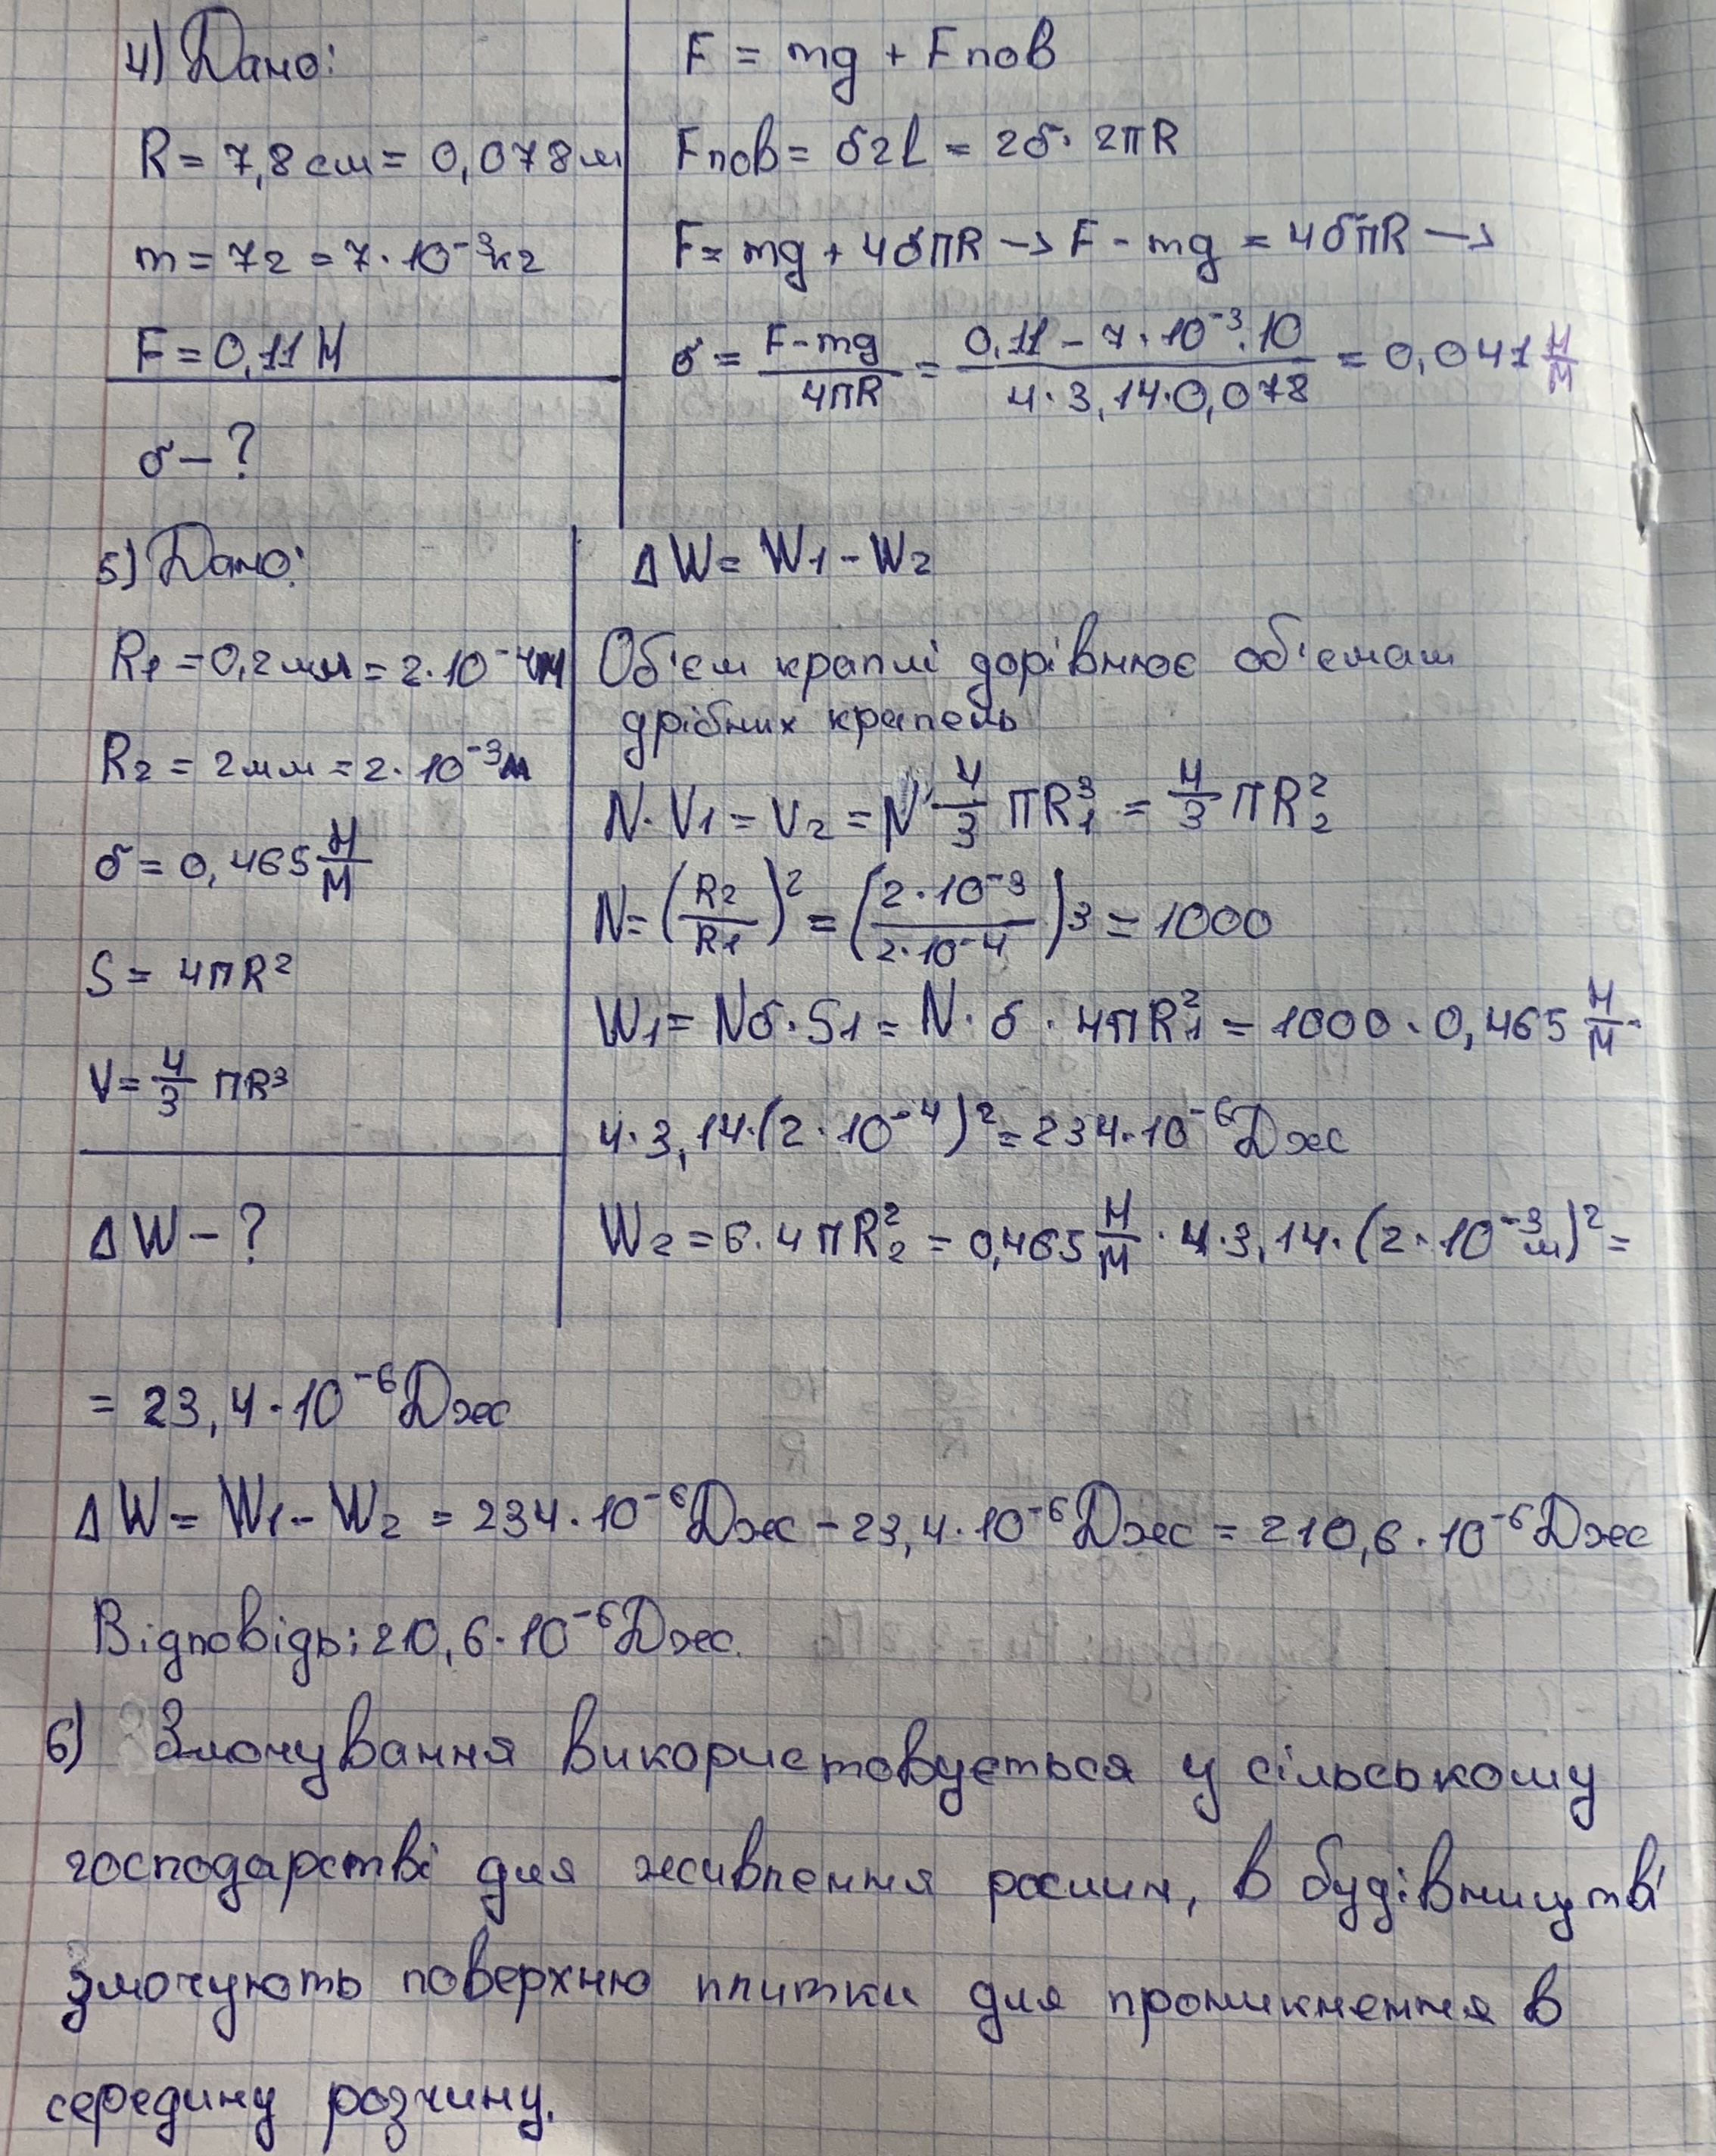 4) Дано:
R = 7,8 см = 0,078 м
m = 7г = 7·10⁻³ кг
F = 0,11 Н
σ – ?
F = mg + Fпов
Fпов = σ2L = 2σ· 2πR
F = mg + 4σπR → F - mg = 4σπR →
σ = (F - mg)/(4πR) = (0,11 - 7·10⁻³·10)/(4·3,14·0,078) = 0,041 Н/м
5) Дано:
R₁ = 0,2 мм = 2·10⁻⁴ м
R₂ = 2 мм = 2·10⁻³ м
σ = 0,465 Н/м
S = 4πR²
V = 4/3 πR³
ΔW – ?
ΔW = W₁ - W₂
Об'єм краплі дорівнює об'ємам
дрібних крапель
N·V₁ = V₂ = N·4/3 πR₁³ = 4/3 πR₂²
N = (R₂/R₁)² = (2·10⁻³/2·10⁻⁴)³ = 1000
W₁ = Nσ·S₁ = N·σ·4πR₁² = 1000·0,465 Н/м·
4·3,14·(2·10⁻⁴)² = 234·10⁻⁶ Дж
W₂ = б·4πR₂² = 0,465 Н/м·4·3,14·(2·10⁻³ м)² =
= 23,4·10⁻⁶ Дж
ΔW = W₁ - W₂ = 234·10⁻⁶ Дж - 23,4·10⁻⁶ Дж = 210,6·10⁻⁶ Дж
Відповідь: 210,6·10⁻⁶ Дж.
6) Змочування використовується у сільському
господарстві для живлення рослин, в будівництві
змочують поверхню плитки для проникнення в
середину розчину.